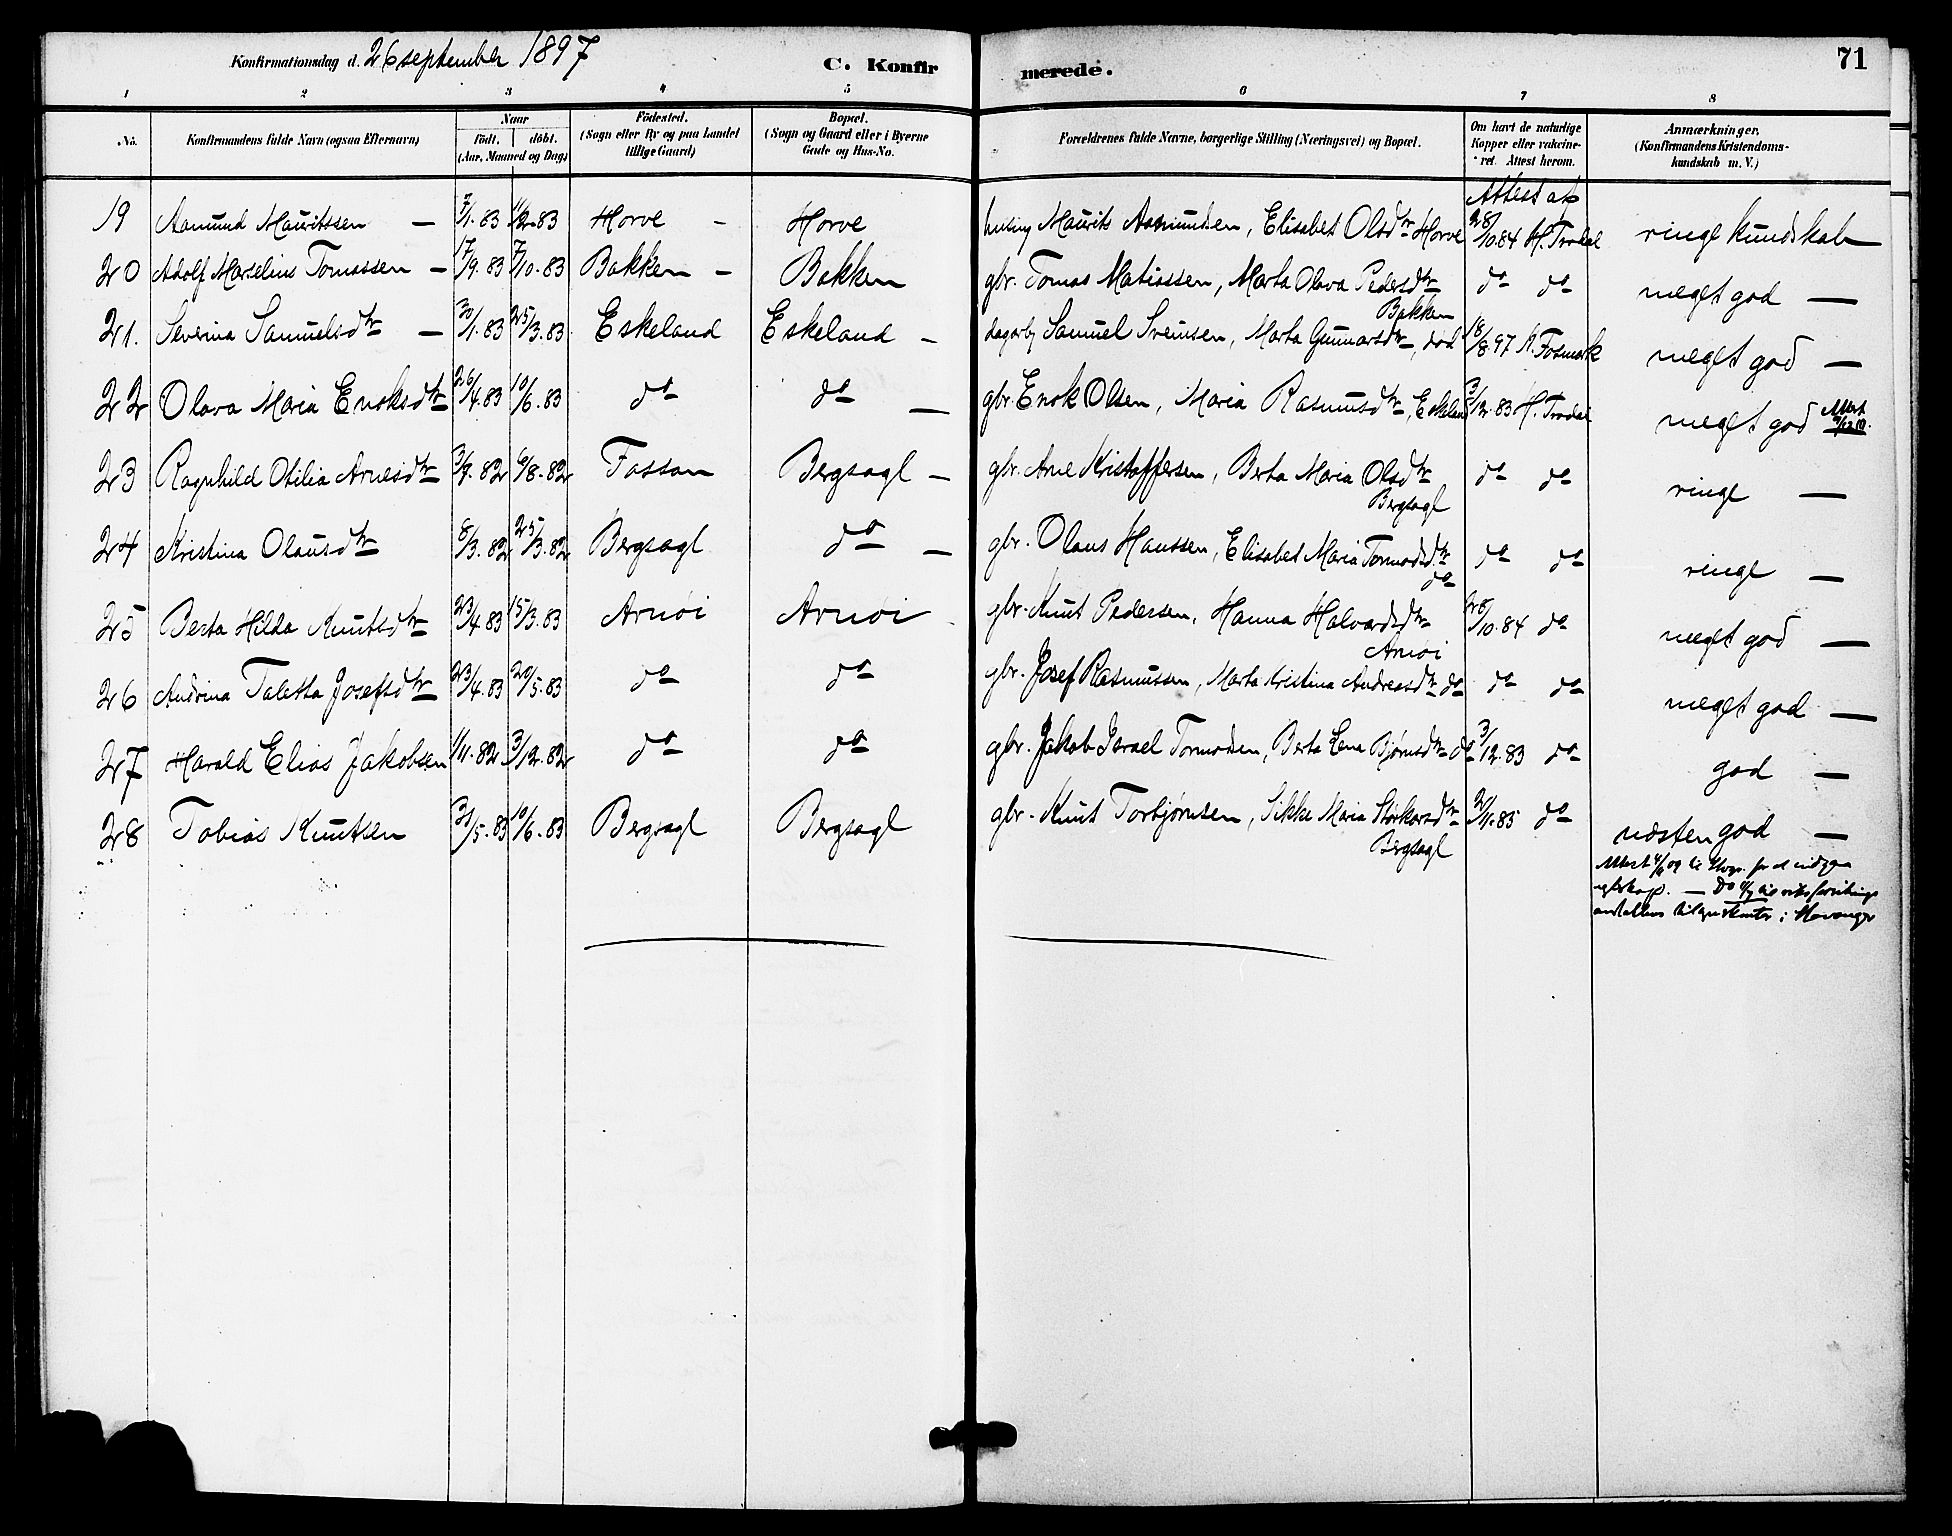 Konfirmationsdag d. 26 september 1897 C. Konfirmerede. 71
1 2 3 4 5 6 7 8
No. Konfirmandens fulde Navn (ogsaa Efternavn) Naar født. døbt. (Aar, Maaned og Dag) Fødested. (Sogn eller By og paa Landet tillige Gaard) Bopæl. (Sogn og Gaard eller i Byerne Gade og Hus-No. Forældrenes fulde Navne, borgerlige Stilling (Næringsvei) og Bopæl. Om havt de naturlige Kopper eller vakcineret. Attest herom. Anmærkninger. (Konfirmandens Kristendomskundskab m. V.)
Attest af
19 Aamund Mauritssen — 7/1.83 11/2.83 Horve - Horve Maurits Aamundsen, Elisabet Olsdtr Horve 28/10.84 H. Trodal ringe kundskab
20 Adolf Marselius Tomassen — 17/9.83 7/10.83 Bakken - Bakken gbr. Tomas Matiassen, Marta Olava Pedersdtr Bakken do do meget god —
21. Severina Samuelsdtr — 30/1.83 25/3.83 Eskeland Eskeland - Samuel Sveinsen, Marta Gunnarsdtr, død 18/8.97 A. Fosmark meget god —
22 Olava Maria Enoksdtr 26/4.83 10/6.83 do do — gbr. Enok Olsen, Maria Rasmusdtr, Eskeland 3/12.83 H. Trodal meget god Attest
23 Ragnhild Otilia Arnesdtr 3/7.82 6/8.82 Fossan Bergsagl — gbr. Arne Kristoffersen, Berta Maria Olsdtr Bergsagl do do ringe —
24 Kristina Olausdtr 8/3.82 25/3.82 Bergsagl do — gbr. Olaus Hanssen, Elisabet Maria Tormodsdtr do do do ringe —
25 Berta Hilda Knutsdtr 23/4.83 15/3.83 Arnøi Arnøi gbr. Knut Pedersen, Hanna Halvardsdtr Arnøi 28/10.84 do meget god —
26 Andrina Taletta Josefsdtr 23/4.83 20/5.83 do do gbr. Josef Rasmussen, Marta Kristina Andreasdtr do do do meget god —
27 Harald Elias Jakobsen 1/11.82 3/12.82 do do gbr. Jakob Israel Tormodsen, Berta Lena Bjørnsdtr do 3/12.83 do god —
28 Tobias Knutsen 31/5.83 10/6.83 Bergsagl Bergsagl gbr. Knut Torbjørnsen, Sikke Maria Størkorsdtr Bergsagl 2/11.85 do næsten god —
Attest 4/6 09 til for at indgaa
egteskap. — Do
i Stavanger